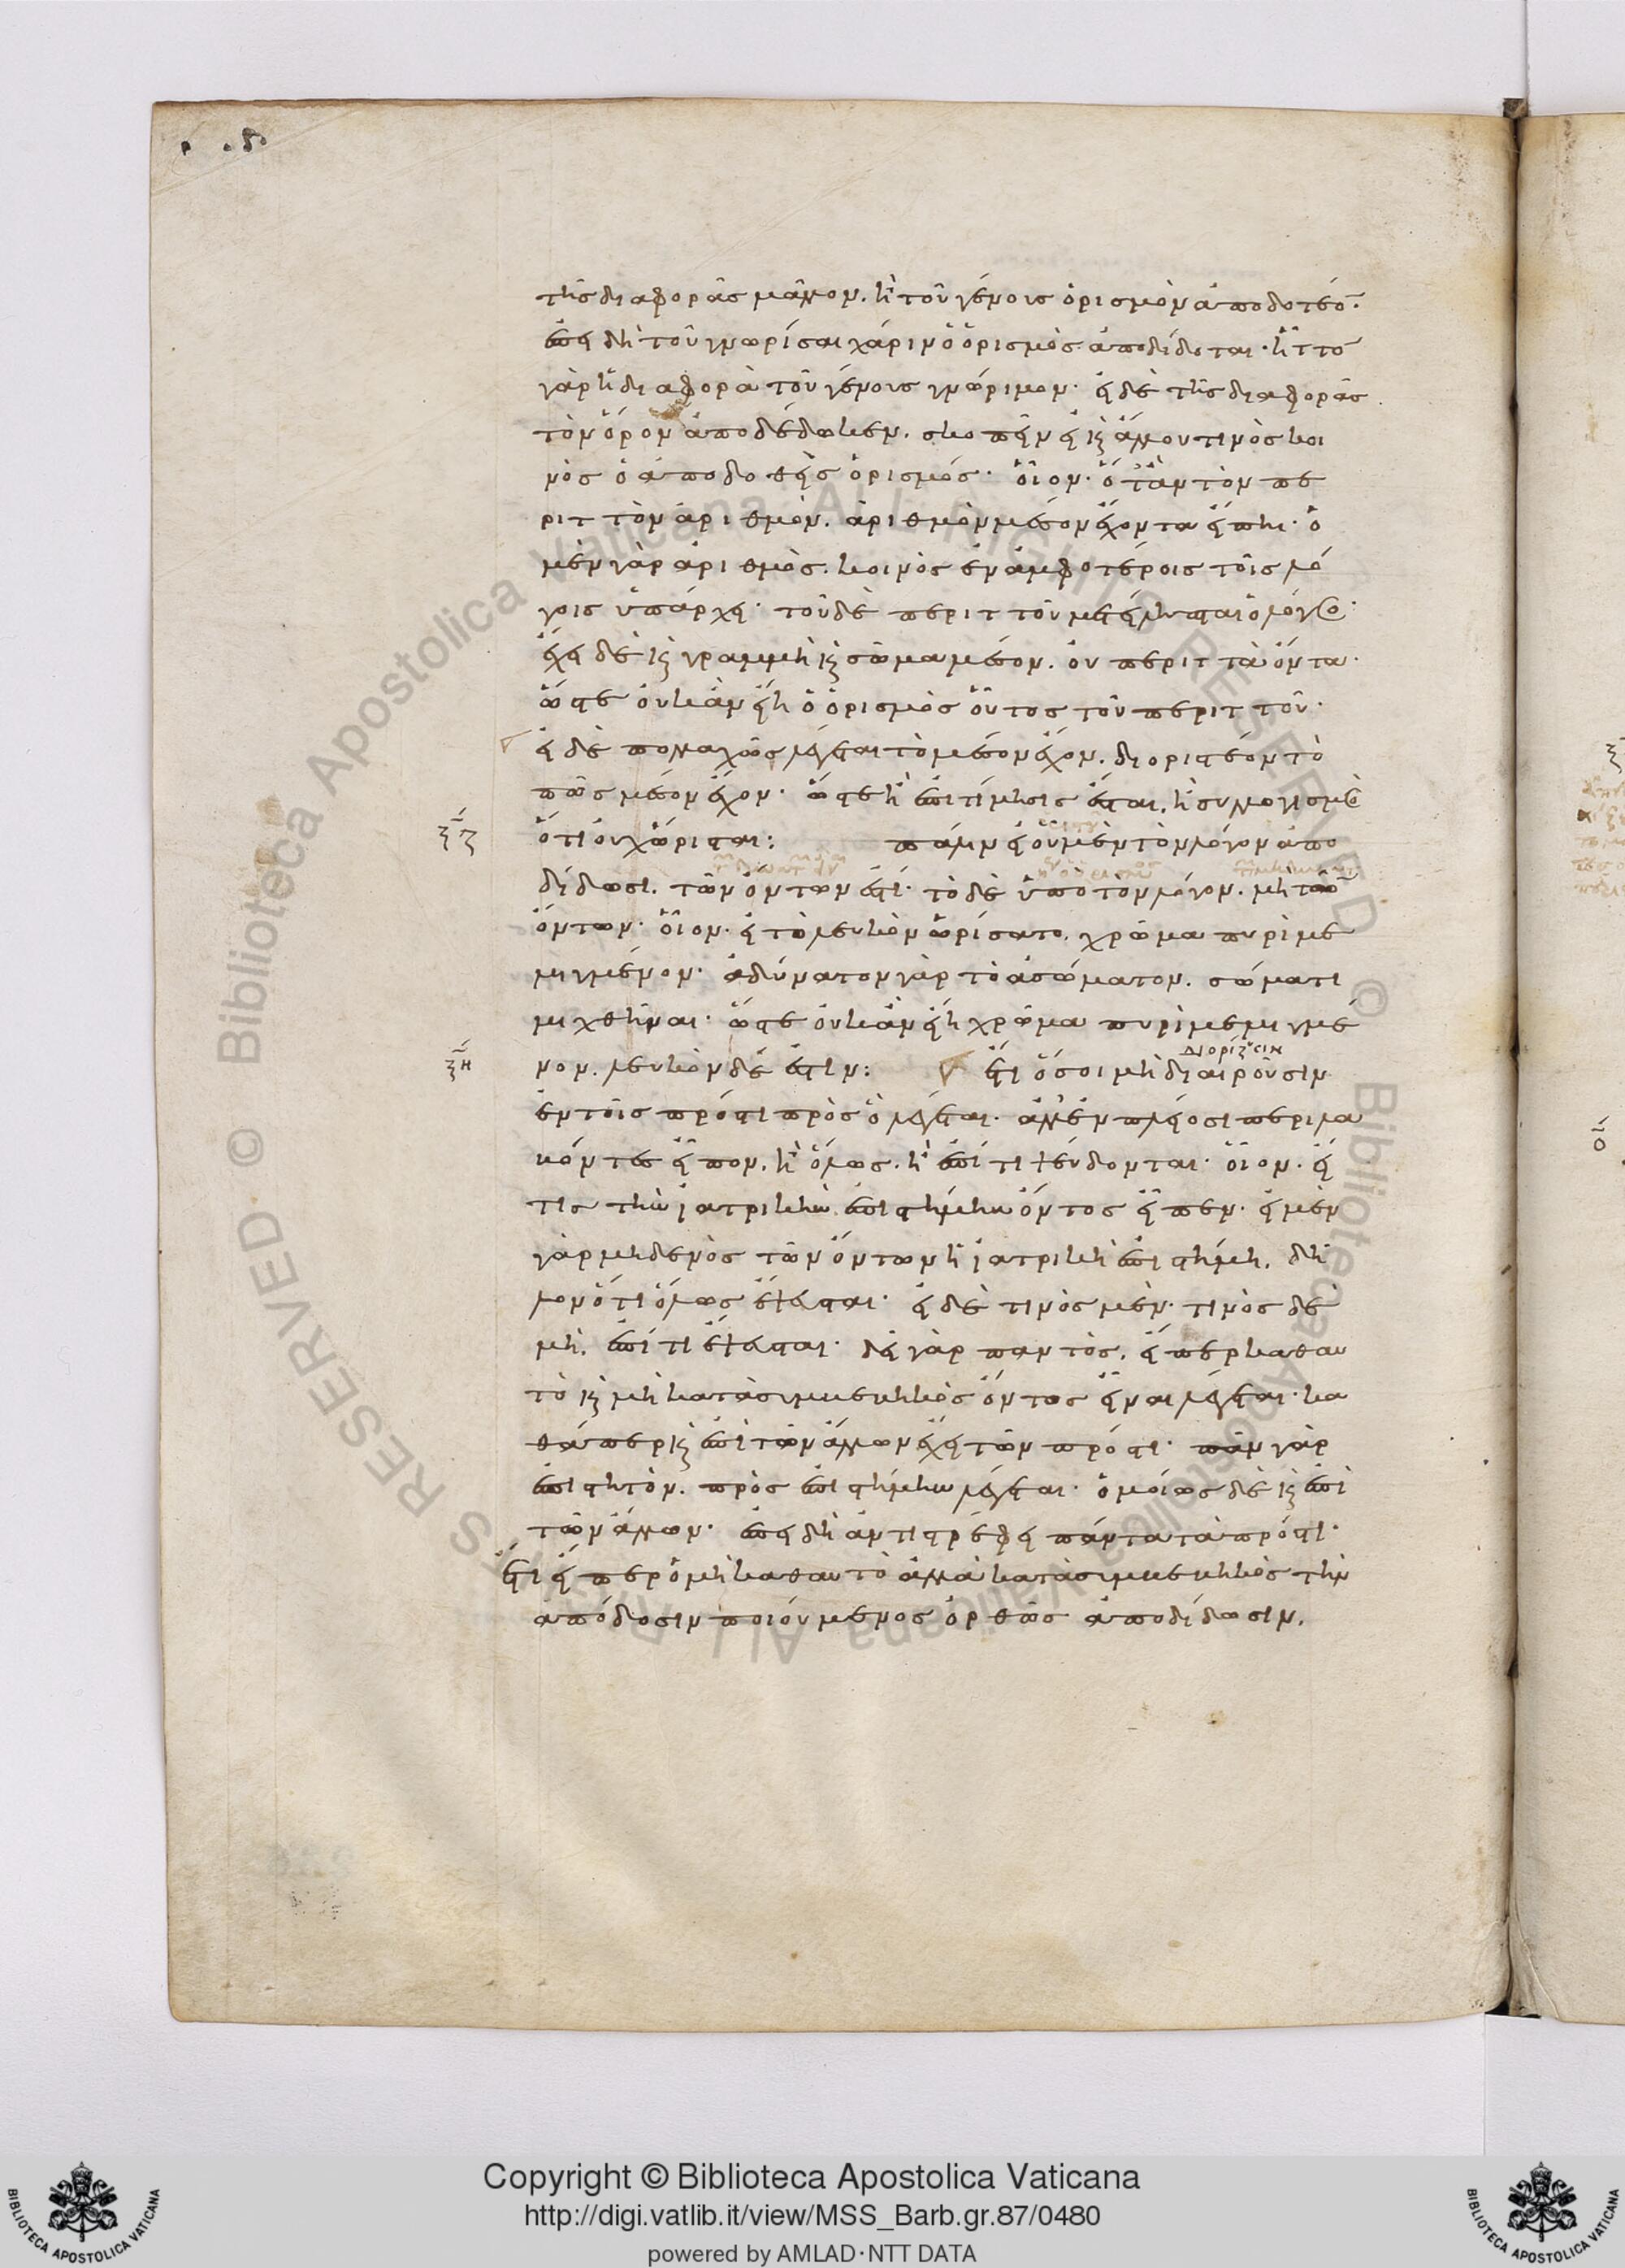 τῆς διαφορᾶς μᾶλλον. ἢ τοῦ γένους ὁρισμὸν ἀποδοτέο̅·
ἐπειδὴ τοῦ γνωρίσαι χάριν ὁ ὁρισμὸς ἀποδίδοται· ἧττο̅
γὰρ ἡ διαφορὰ τοῦ γένους γνώριμον· εἰ δὲ τῆς διαφορᾶς
τὸν ὅρον ἀποδέδωκεν. σκοπεῖν εἰ καὶ ἄλλου τινὸς κοι
νὸς ὁ ἀποδοθεὶς ὁρισμός· οἷον· ὅτἂν τὸν πε
ριττὸν ἀριθμὸν. ἀριθμὸν μέσον ἔχοντα εἴπηι· ὁ
μὲν γὰρ ἀριθμὸς. κοινὸς ἐν ἀμφοτέροις τοῖς λό
γοις ὑπάρχει· τοῦ δὲ περιττοῦ μετείληπται ὁ λόγος·
ἔχει δὲ καὶ γραμμὴ καὶ σῶμα μέσον. οὐ περιττὰ ὄντα·
ὥστε οὐκ ἂν εἴη ὁ ὁρισμὸς οὗτος τοῦ περιττοῦ·
εἰ δὲ πολλαχῶς λέγεται τὸ μέσον ἔχον. διοριστέον τὸ
πῶς μέσον ἔχον· ὥστε ἢ ἐπιτίμησις ἔσται. ἢ συλλογισμὸς
ξζ ὅτι οὐχ ὥρισται: πάλιν εἰ οὗ μὲν τὸν λόγον ἀπο
δίδωσι. τῶν ὄντων ἐστί· τὸ δὲ ὑπὸ τὸν λόγον. μὴ τῶν
ὄντων· οἷον· εἰ τὸ λευκὸν ὡρίσατο. χρῶμα πυρὶ με
μιγμένον· ἀδύνατον γὰρ τὸ ἀσώματον. σώματι
μιχθῆναι· ὥστε οὐκ ἂν εἴη χρῶμα πυρὶ μεμιγμέ
διορίζειν
ξη νον. λευκὸν δέ ἐστιν: ἔτι ὅσοι μὴ διαιροῦσιν
ἐν τοῖς πρός τι πρὸς ὃ λέγεται. ἀλλ' ἐν πλείοσι περιλα
βόντες εἶπον. ἢ ὅλως. ἢ ἐπί τι ψεύδονται· οἷον. εἴ
τις τὴν ἰατρικὴν ἐπιστήμην ὄντος εἶπεν· εἰ μὲν
γὰρ μηδενὸς τῶν ὄντων ἡ ἰατρικὴ ἐπιστήμη. δῆ
λον ὅτι ὅλως ἔψευσται· εἰ δὲ τινὸς μὲν· τινὸς δὲ
μὴ. ἐπί τι ἔψευσται· δεῖ γὰρ παντός. εἴπερ καθ αυ
τὸ καὶ μὴ κατὰ συμβεβηκὸς ὄντος εἶναι λέγεται· κα
θάπερ καὶ ἐπὶ τῶν ἄλλων ἔχει τῶν πρός τι· πᾶν γὰρ
ἐπιστητὸν. πρὸς ἐπιστήμην λέγεται· ὁμοίως δὲ καὶ ἐπὶ
τῶν ἄλλων· ἐπειδὴ ἀντιστρέφει πάντα τὰ πρός τι·
ἔτι εἴπερ ὁ μὴ καθ αυτὸ ἀλλὰ κατὰ συμβεβηκὸς τὴν
ἀπόδοσιν ποιούμενος ὀρθῶς ἀποδίδωσιν.
Copyright © Biblioteca Apostolica Vaticana
http://digi.vatlib.it/view/MSS_Barb.gr.87/0480
powered by AMLAD·NTT DATA